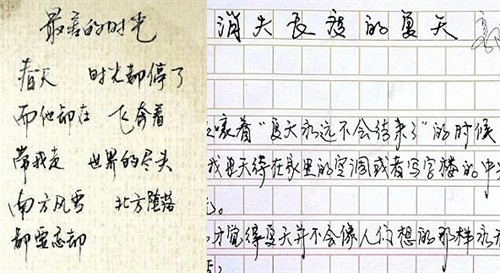 最美的时光
春天 时光却停了
而他却在 飞奔着
带我走 世界的尽头
南方风雪 北方堕落
都要忘却
消失长度的夏天
嚷着“夏天永远不会结束了”的时候
天待在家里的空调或者写字楼的中
觉得夏天并不会像人们想的那样永